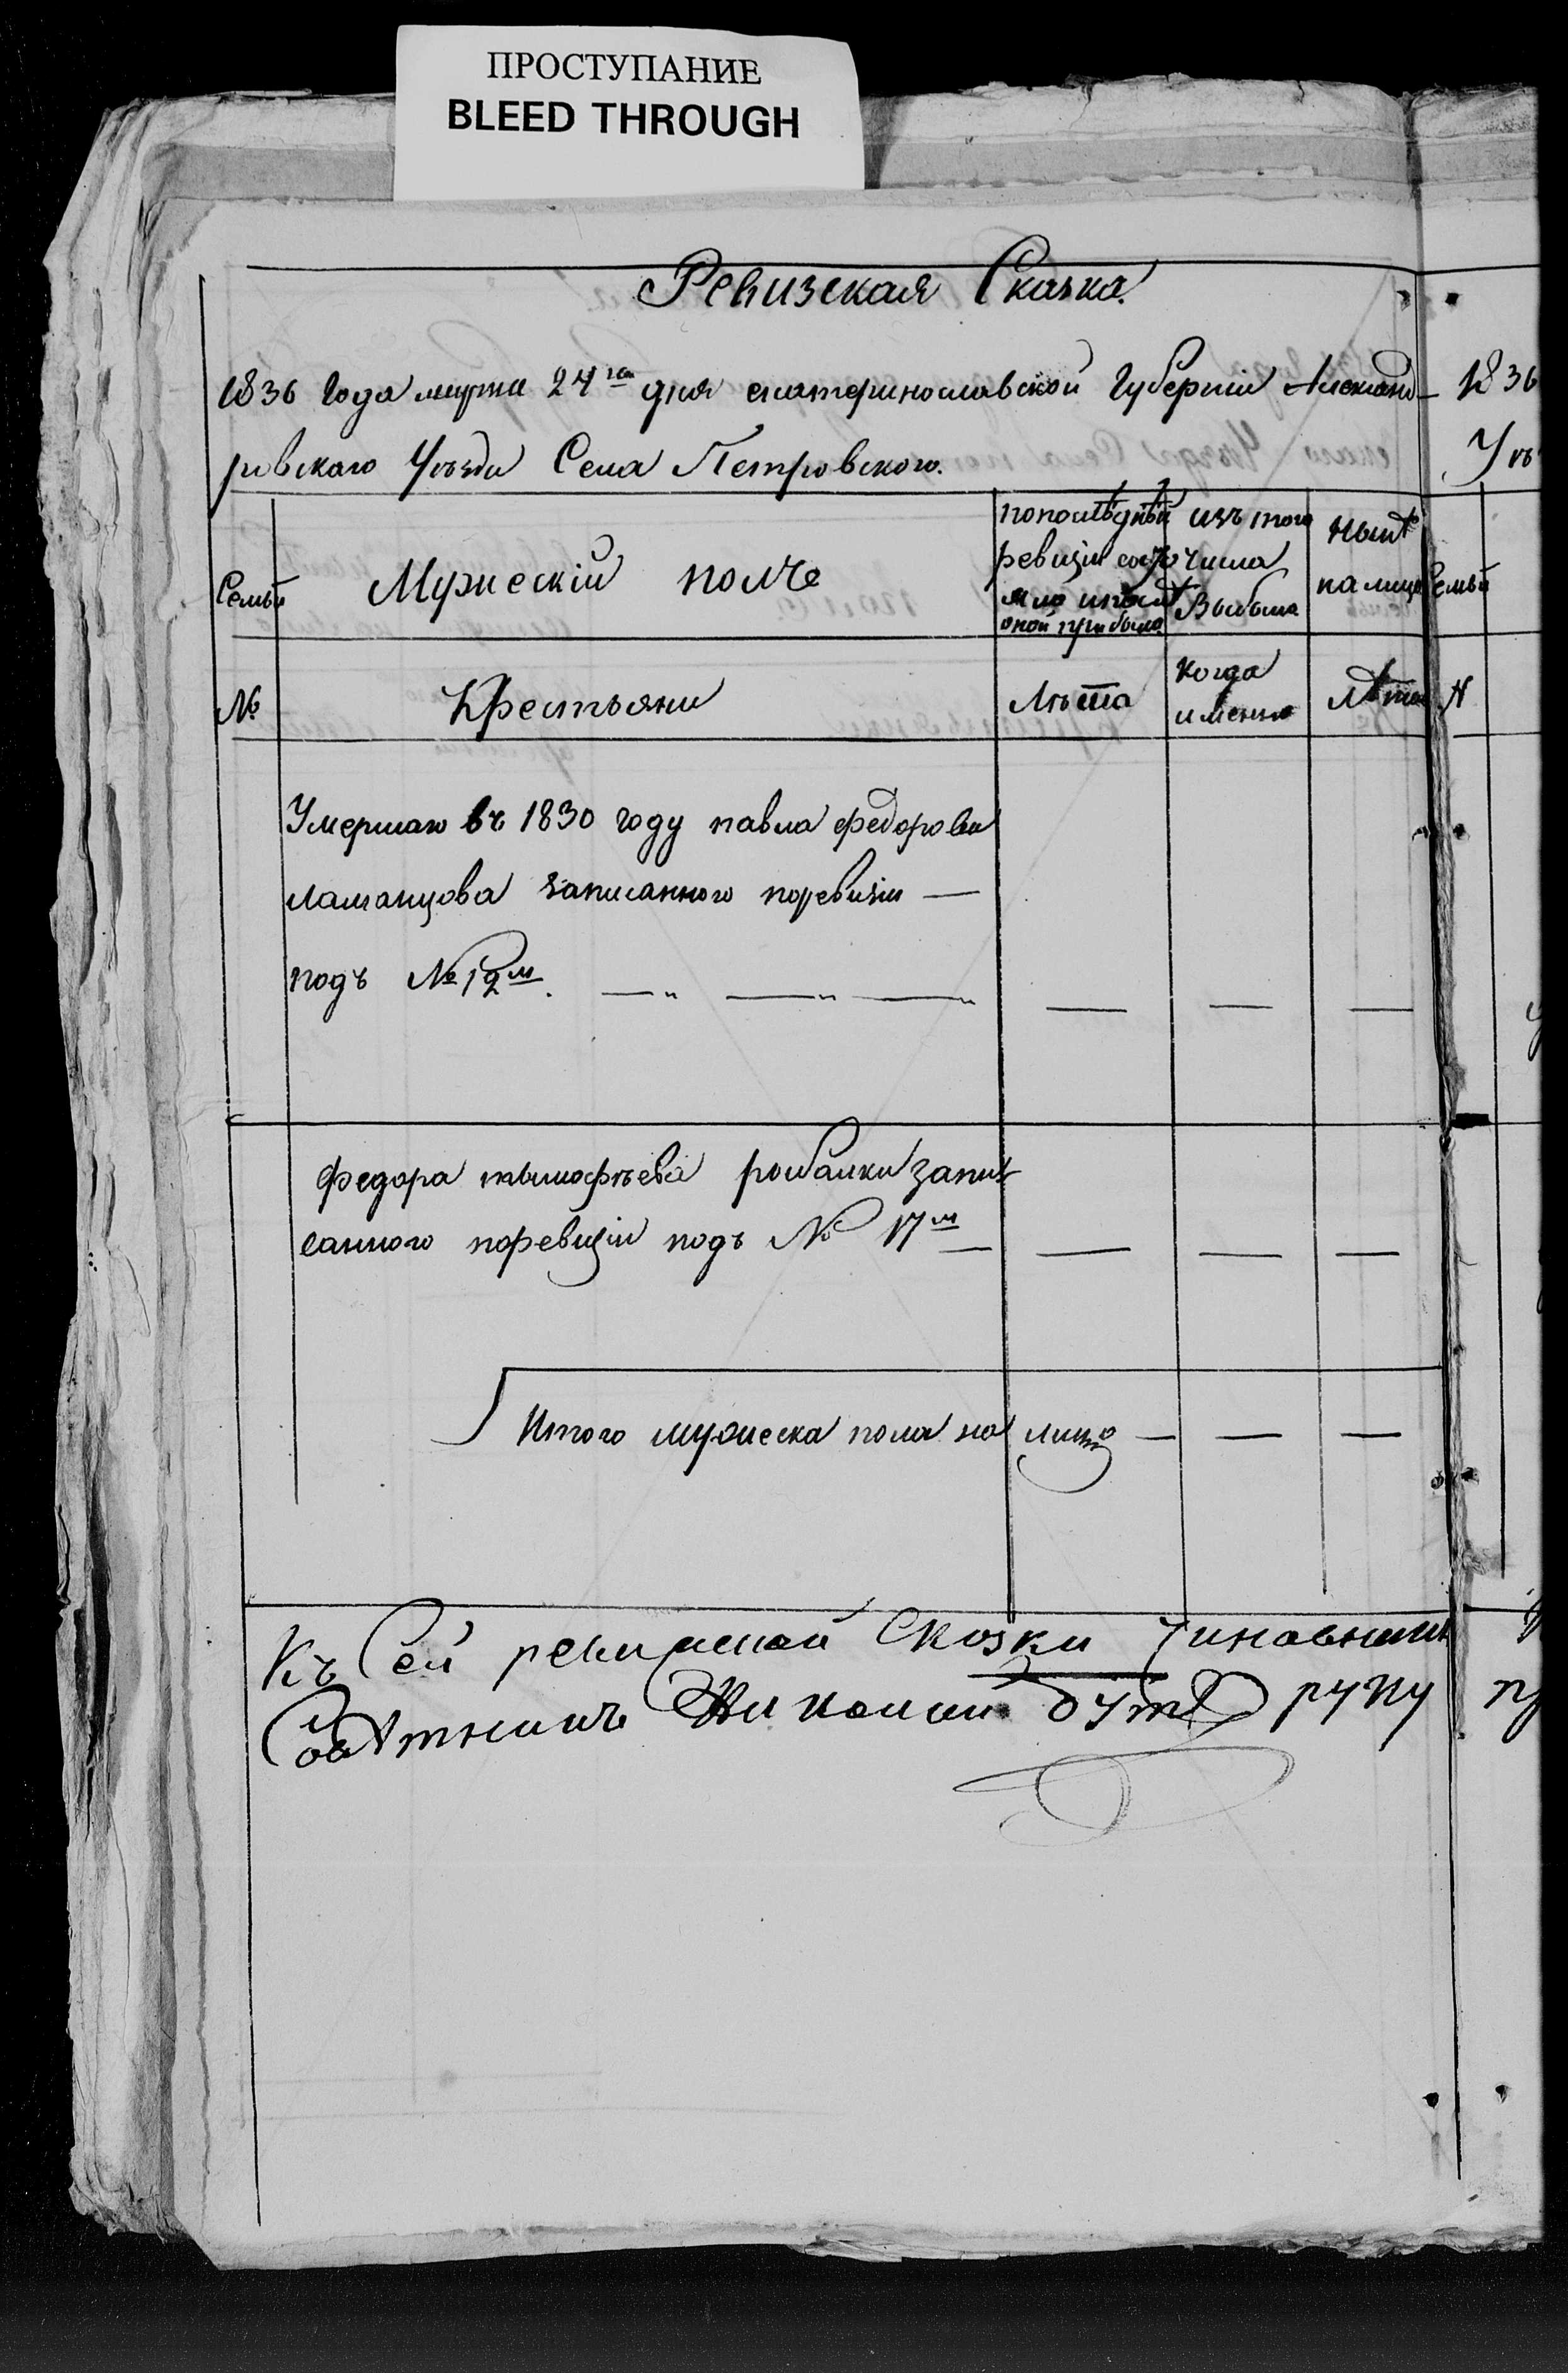 ПРОСТУПАНИЕ
BLEED THROUGH
Ревизская Сказка.
1836 Года марта 24го дня екатеринославской Губернiи Александ-
ровского Уѣзда Села Петровского.
Семьи
Мужескiй полъ
попослѣдней
ревизiи состо
яло ипослѣ
оной прибыло
изъ того
числа
Выбыло
Нынѣ
налицо
№
Крестьяни
Лѣта
Когда
именно
Лѣта
Умершаго въ 1830 году павла федорова
ламанцова записанного поревизiи —
подъ № 12м.
федора тымофѣева рыбалки запи-
санного поревизiи подъ № 17м
Итого мужеска пола на лицо
Къ Сей ревизской Сказки
руку
1836
Уѣ
Семьи